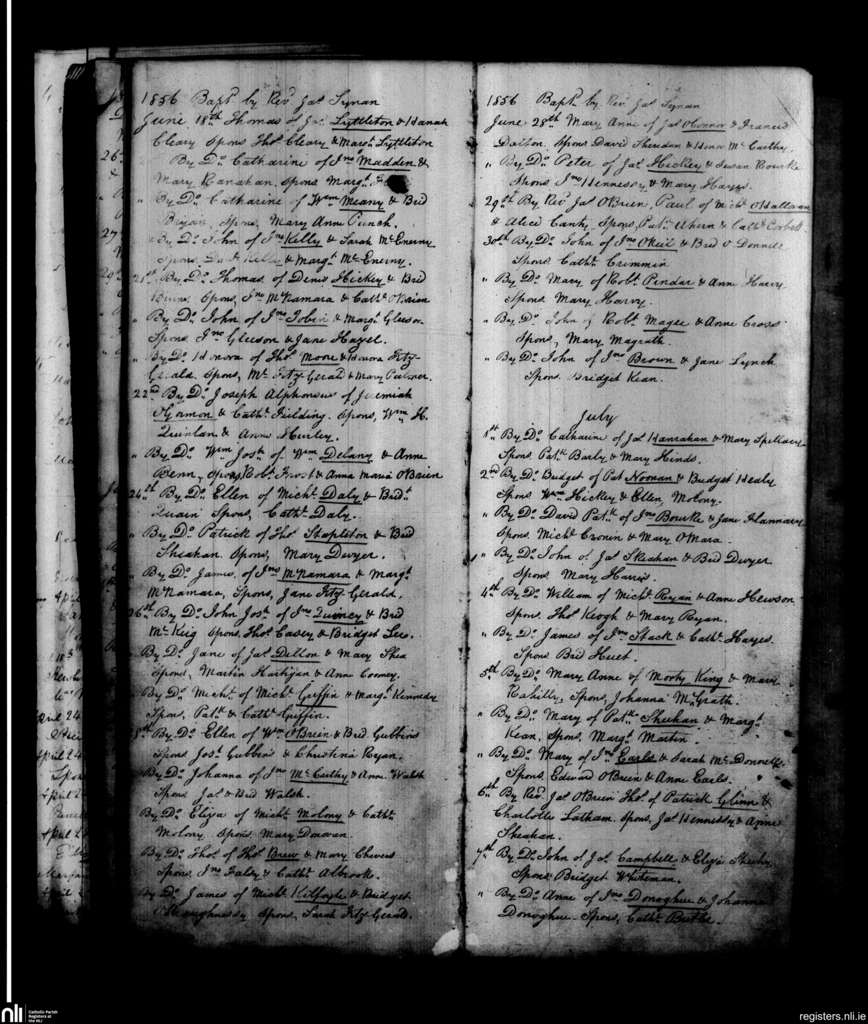 1856 Bapt. by Revd Jas Synan
June 18th Thomas of Jas. Lyttleton & Hanah
Cleary Spons Thos Cleary & Margt Lyttleton
By Do. Catharine of Jno Madden &
Mary Hanahan. Spons Margt.
" By Do. Catharine of Wm Meany & Bid
Bryan, Spons, Mary Anne Punch.
By Do John of Jno Kelly & Sarah McEnerny
Spons Kelly & Margt. McEnerny.
21st By Do. Thomas of Denis Hickey & Bid
Spons, Jno McNamara & Cathe OBrien
" By Do. John of Jno Tobin & Margt Gleeson
Spons Jno Gleeson & Jane Hazel.
" By Do. Honora of Thos Moore & Honora Fitz-
Gerald. Spons, Mc. Fitz Gerald & Mary
22nd By Do. Joseph Alphonsus of Jeremiah
& Cathe. Fielding. Spons, Wm H.
Quinlan & Anne Hurley.
" By Do. Wm Josh of Wm Delany & Anne
Spons, Robt. Frost & Anna Maria OBrien
24th By Do. Ellen of Michl Daly & Bidt
Spons, Cathe. Daly.
" By Do. Patrick of Thos Stapleton & Bid
Sheahan. Spons, Mary Dwyer.
" By Do. James, of Jno McNamara & Margt
McNamara, Spons, Jane Fitz-Gerald.
26th By Do. John Josh. of Jno Quincy & Bid
McKeig Spons Thos Casey & Bridget Lee.
By Do. Jane of Jas Dillon & Mary Shea
Spons, Martin Hartigan & Ann Cooney.
By Do. Michl. of Michl Griffin & Margt. Kennedy
Spons, Patk & Cathe Griffin.
8th By Do. Ellen of Wm OBrien & Bid Gubbins
Spons Josh Gubbins & Christina Ryan.
By Do. Johanna of Jno McCarthy & Anne Walsh
Spons Jas & Bid Walsh.
By Do. Eliza of Michl Molony & Cathe
Molony. Spons Mary Donovan.
By Do. Thos. of Thos Brew & Mary Cheevers
Spons, Jno Faley & Cathe Albrook.
By Do. James of Michl Kilfoyle & Bridget
Shaughnessy Spons, Sarah Fitz-Gerald.
1856 Bapt. by Revd Jas Synan
June 28th Mary Anne of Jas OConnor & Frances
Dalton. Spons David Sheridan & Honor McCarthy.
" By Do. Peter of Jas. Hickey & Susan Rourke
Spons Jno Hennessy & Mary Hayes.
29th By Revd Jas OBrien, Paul of Michl OHalloran
& Alice Canty. Spons, Patk. Ahern & Cathe Corbett
30th By Do. John of Jno ONeil & Bid O Donnell
Spons Cathe. Crimmin
" By Do. Mary of Robt. Pindar & Anne Harry
Spons Mary Harvy.
" By Do. John of Robt. Magee & Anne Cross
Spons, Mary Magrath.
" By Do. John of Jno Brown & Jane Lynch
Spons. Bridget Kean.
July
1st By Do. Catharine of Jas Hanrahan & Mary Spelissy
Spons Patk Barly & Mary Hinds.
2nd By Do. Bridget of Pat Noonan & Bridget Healy
Spons Wm Hickey & Ellen Molony.
" By Do. David Patk. of Jno Bourke & Jane Flannary
Spons. Michl Cronin & Mary OMara.
" By Do. John of Jas Skeahan & Bid Dwyer
Spons Mary Harris.
4th By Do. William of Michl Ryan & Anne Hewson
Spons. Thos Keogh & Mary Ryan.
" By Do. James of Jno Stack & Cathe. Hayes.
Spons Bid Huet.
5th By Do. Mary Anne of Morty King & Mary
Cahilly, Spons, Johanna McGrath.
" By Do. Mary of Patk. Sheehan & Margt
Kean. Spons. Margt. Martin.
" By Do. Mary of Jno Earls & Sarah McDonnell
Spons. Edward OBrien & Anne Earls.
6th By Revd. Jas OBrien Thos. of Patrick Glinn &
Charlotte Latham. Spons, Jas Hennessy & Anne
Skeahan.
7th By Do. John of Jos. Campbell & Eliza Sheehy
Spons Bridget Whiteman.
" By Do. Anne of Jno Donoghue & Johanna
Donoghue. Spons, Cathe. Butler.
26
27
29
April 24
April 24
April 2
nli
Catholic Parish
Registers at
the NLI
registers.nli.ie